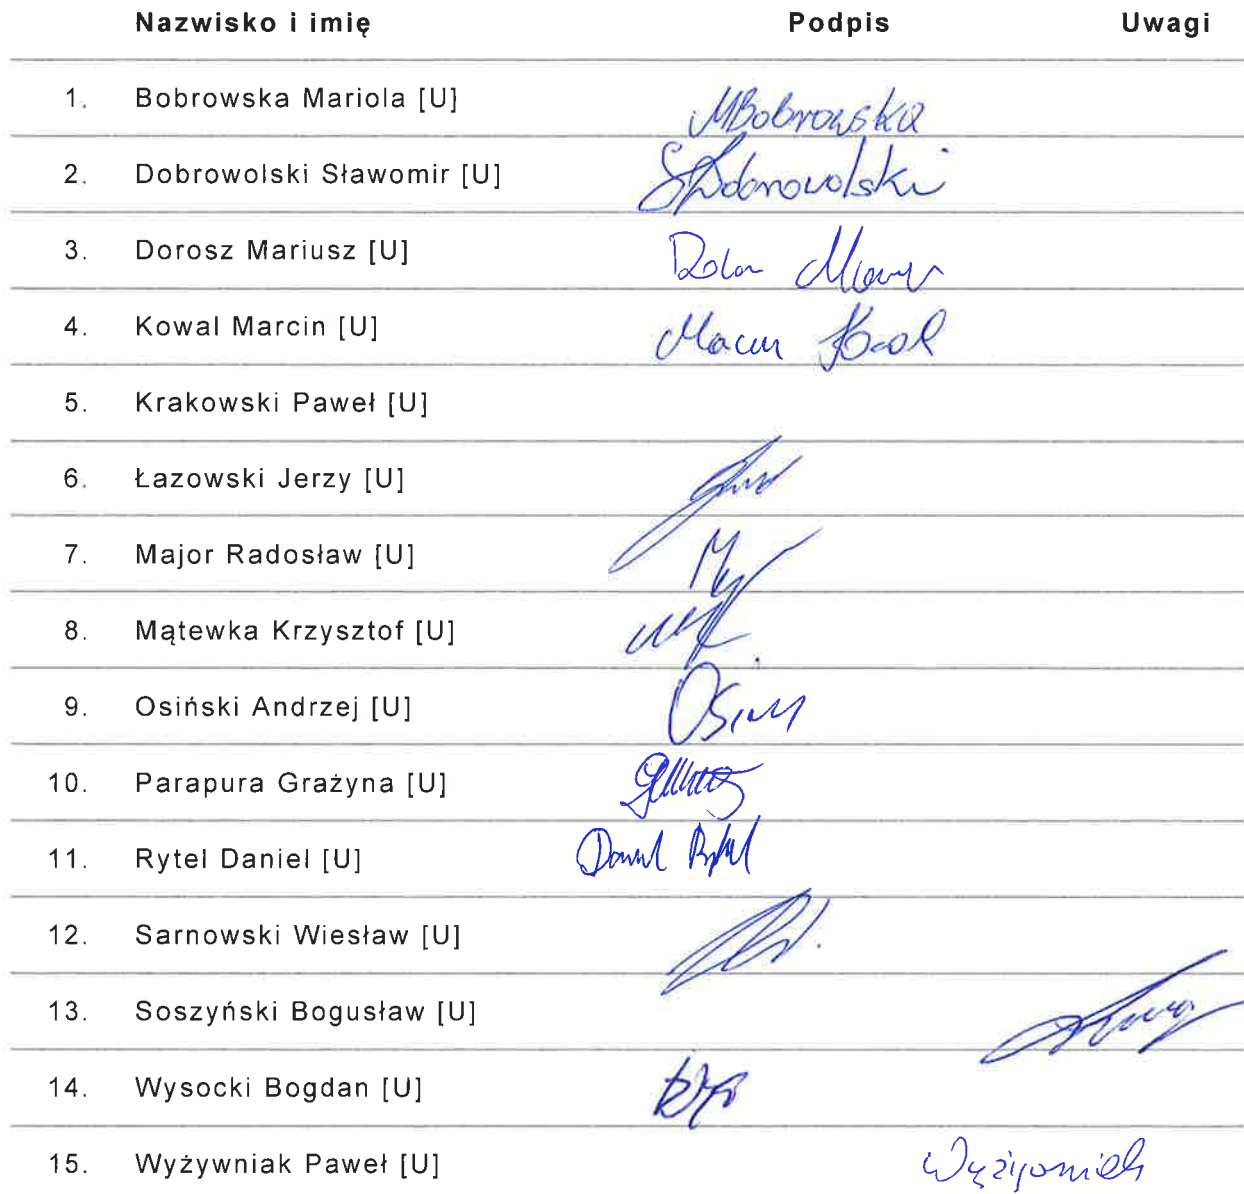 Nazwisko i imię Podpis Uwagi
1. Bobrowska Mariola [U] MBobrowska
2. Dobrowolski Sławomir [U] SDobrowolski
3. Dorosz Mariusz [U]
4. Kowal Marcin [U] Marcin Kowal
5. Krakowski Paweł [U]
6. Łazowski Jerzy [U]
7. Major Radosław [U]
8. Mątewka Krzysztof [U]
9. Osiński Andrzej [U]
10. Parapura Grażyna [U]
11. Rytel Daniel [U] Daniel Rytel
12. Sarnowski Wiesław [U]
13. Soszyński Bogusław [U]
14. Wysocki Bogdan [U]
15. Wyżywniak Paweł [U] Wyżywniak